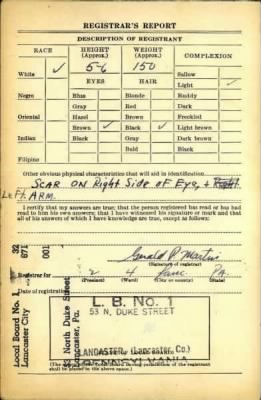 REGISTRAR'S REPORT
DESCRIPTION OF REGISTRANT
RACE HEIGHT (Approx.) WEIGHT (Approx.) COMPLEXION
5-6 150 Sallow
White ✓ EYES HAIR Light ✓
Negro Blue Blonde Ruddy
Gray Red Dark
Oriental Hazel Brown Freckled
Brown ✓ Black ✓ Light brown
Indian Black Gray Dark brown
Bald Black
Filipino
Other obvious physical characteristics that will aid in identification
SCAR ON Right Side of Eye, & Right
Left ARM.
I certify that my answers are true; that the person registered has read or has had
read to him his own answers; that I have witnessed his signature or mark and that
all of his answers of which I have knowledge are true, except as follows:
32
671
001
Gerald P. Martin
(Signature of registrar)
Registrar for 2 4 Lanc. PA.
Date of registration
Local Board No. 1
Lancaster City
53 North Duke Street
Lancaster, Pa.
L. B. No. 1
53 N. DUKE STREET
LANCASTER (Lancaster, Co.)
PENNSYLVANIA